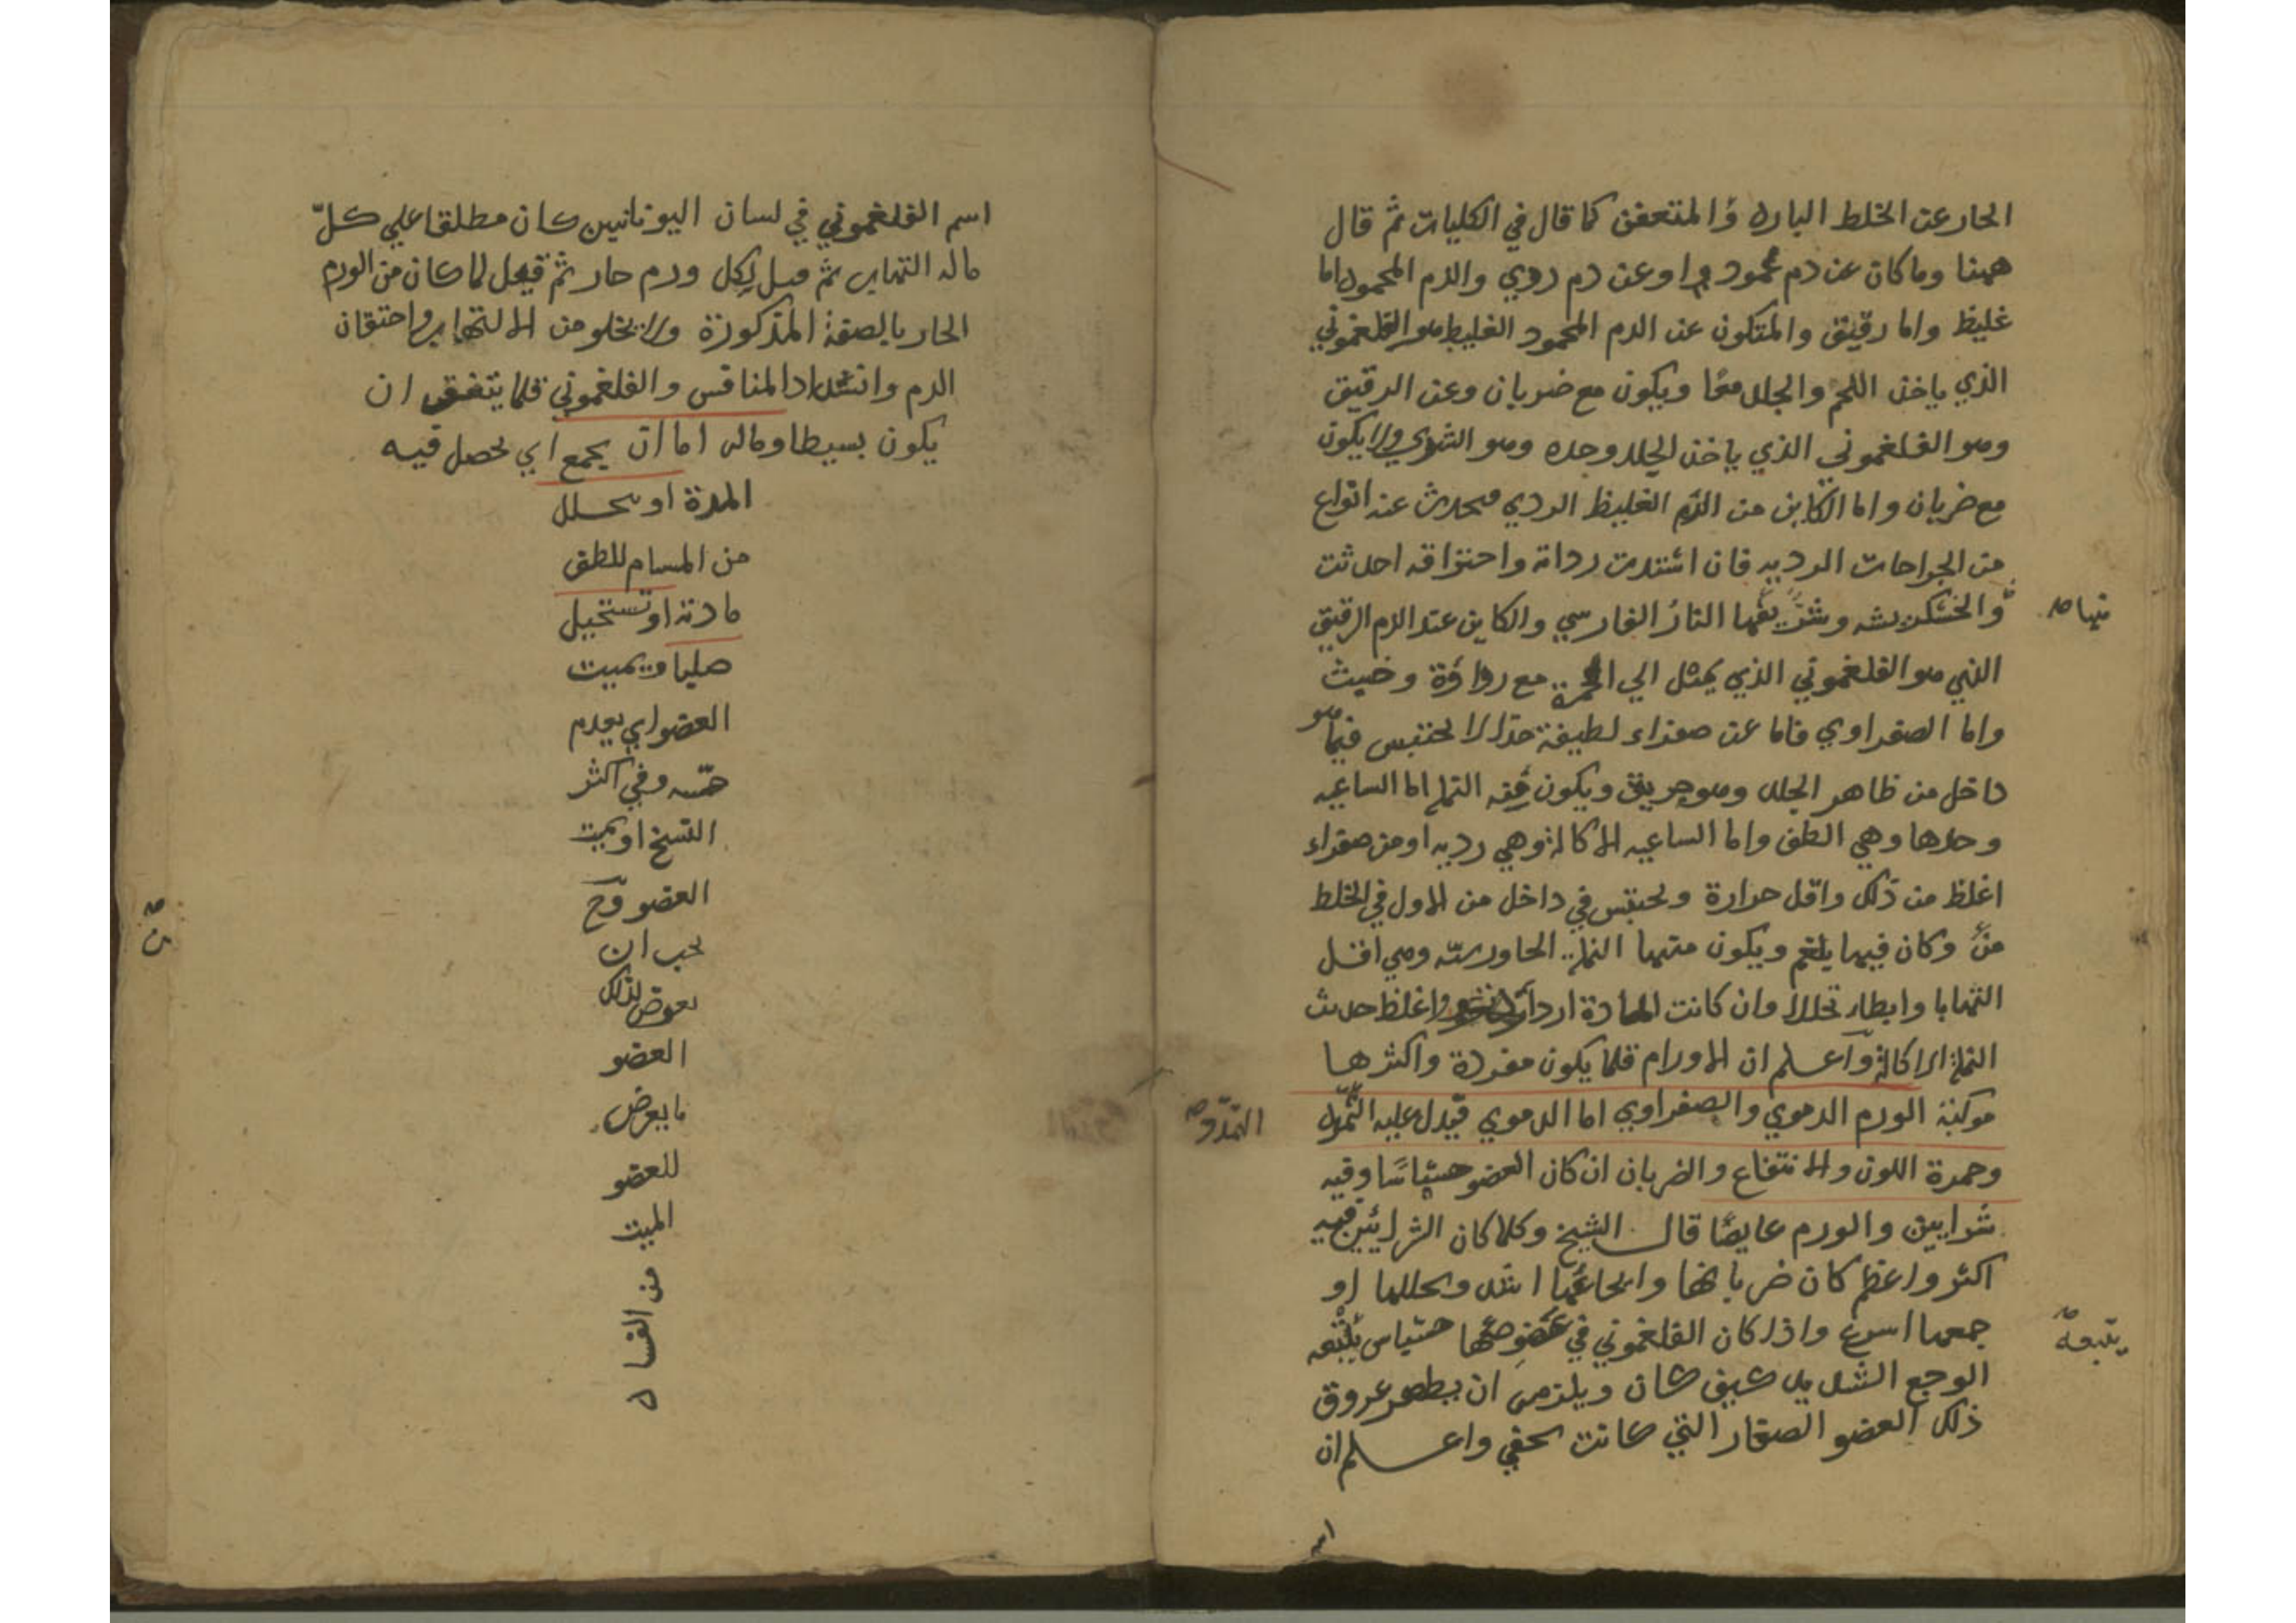 الحار عن الخلط البارد والمتعفن كما قال في الكليات ثم قال
ههنا وما كان عن دم محمود او عن دم ردي والدم المحمود اما
غليظ واما رقيق والمتكون عن الدم المحمود الغليظ هو الفلغموني
الذي ياخذ اللحم والجلد معا ويكون مع ضربان وعن الرقيق
وهو الفلغموني الذي ياخذ الجلد وحده وهو الشري ولا يكون
مع ضربان واما الكاين من الدم الغليظ الردي فيحدث عنه انواع
من الجراحات الرديه فان اشتدت رداته واحتراقه احدثت
والخشكريشه وشر يفها النار الفارسي والكاين عند الدم الرقيق
نها
الذي هو الفلغموني الذي يميل الي الحمرة مع رداؤة وخبث
واما الصفراوي فاما عن صفراء لطيفة جدا لا تحتبس فيما هو
داخل من ظاهر الجلد وهو حريق ويكون منه النمله اما الساعيه
وحدها وهي الطف واما الساعيه الاكالة وهي رديه او من صفراء
اغلظ من ذلك واقل حرارة وتحتبس في داخل من الاول في الخلط
من وكان فيها بلغم ويكون منها النملة الجاورسه وهي اقل
التهابا وابطاء تحللا وان كانت المادة اردا واغلظ حدث
النملة الاكالة واعلم ان الاورام قلما يكون مفردة واكثرها
مركبة الورم الدموي والصفراوي اما الدموي فيدل عليه
التمدد
وحمرة اللون والانتفاخ والضربان ان كان العضو حساسا وفيه
شرايين والورم غايضا قال الشيخ وكلما كان الشرايين فيه
اكثر واعظم كان ضربانها وايجاعها اشد وتحللها او
جمعها اسرع واذا كان الفلغموني في عضو حساس يتبعه
يتبعه
الوجع الشديد كيف كان ويلزمه ان يظهر عروق
ذلك العضو الصغار التي كانت تخفي واعلم ان
اسم
اسم الفلغموني في لسان اليونانيين كان مطلقا علي كل
ماله التهاب ثم قيل لكل ورم حار ثم قيل لما كان من الورم
الحار بالصفة المذكورة ولا يخلو من الالتهاب واحتقان
الدم وانسداد المنافس والفلغموني قلما يتفق ان
يكون بسيطا وماله اما ان يجمع اي يحصل فيه
المدة او يتحلل
من المسام للطف
مادته او تستحيل
صلبا ويميت
العضو اي يعدم
حسه وفي اكثر
النسخ او يميت
العضو وح
يجب ان
يعرض لذلك
العضو
ما يعرض
للعضو
الميت
من الفساد